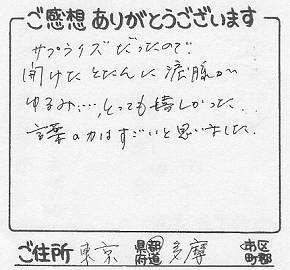 ご感想ありがとうございます
サプライズだったので
開けたとたんに涙腺が
ゆるみ…,とっても嬉しかった…
言葉の力はすごいと思いました.
ご住所 東京 都道府県 多摩 市区町郡